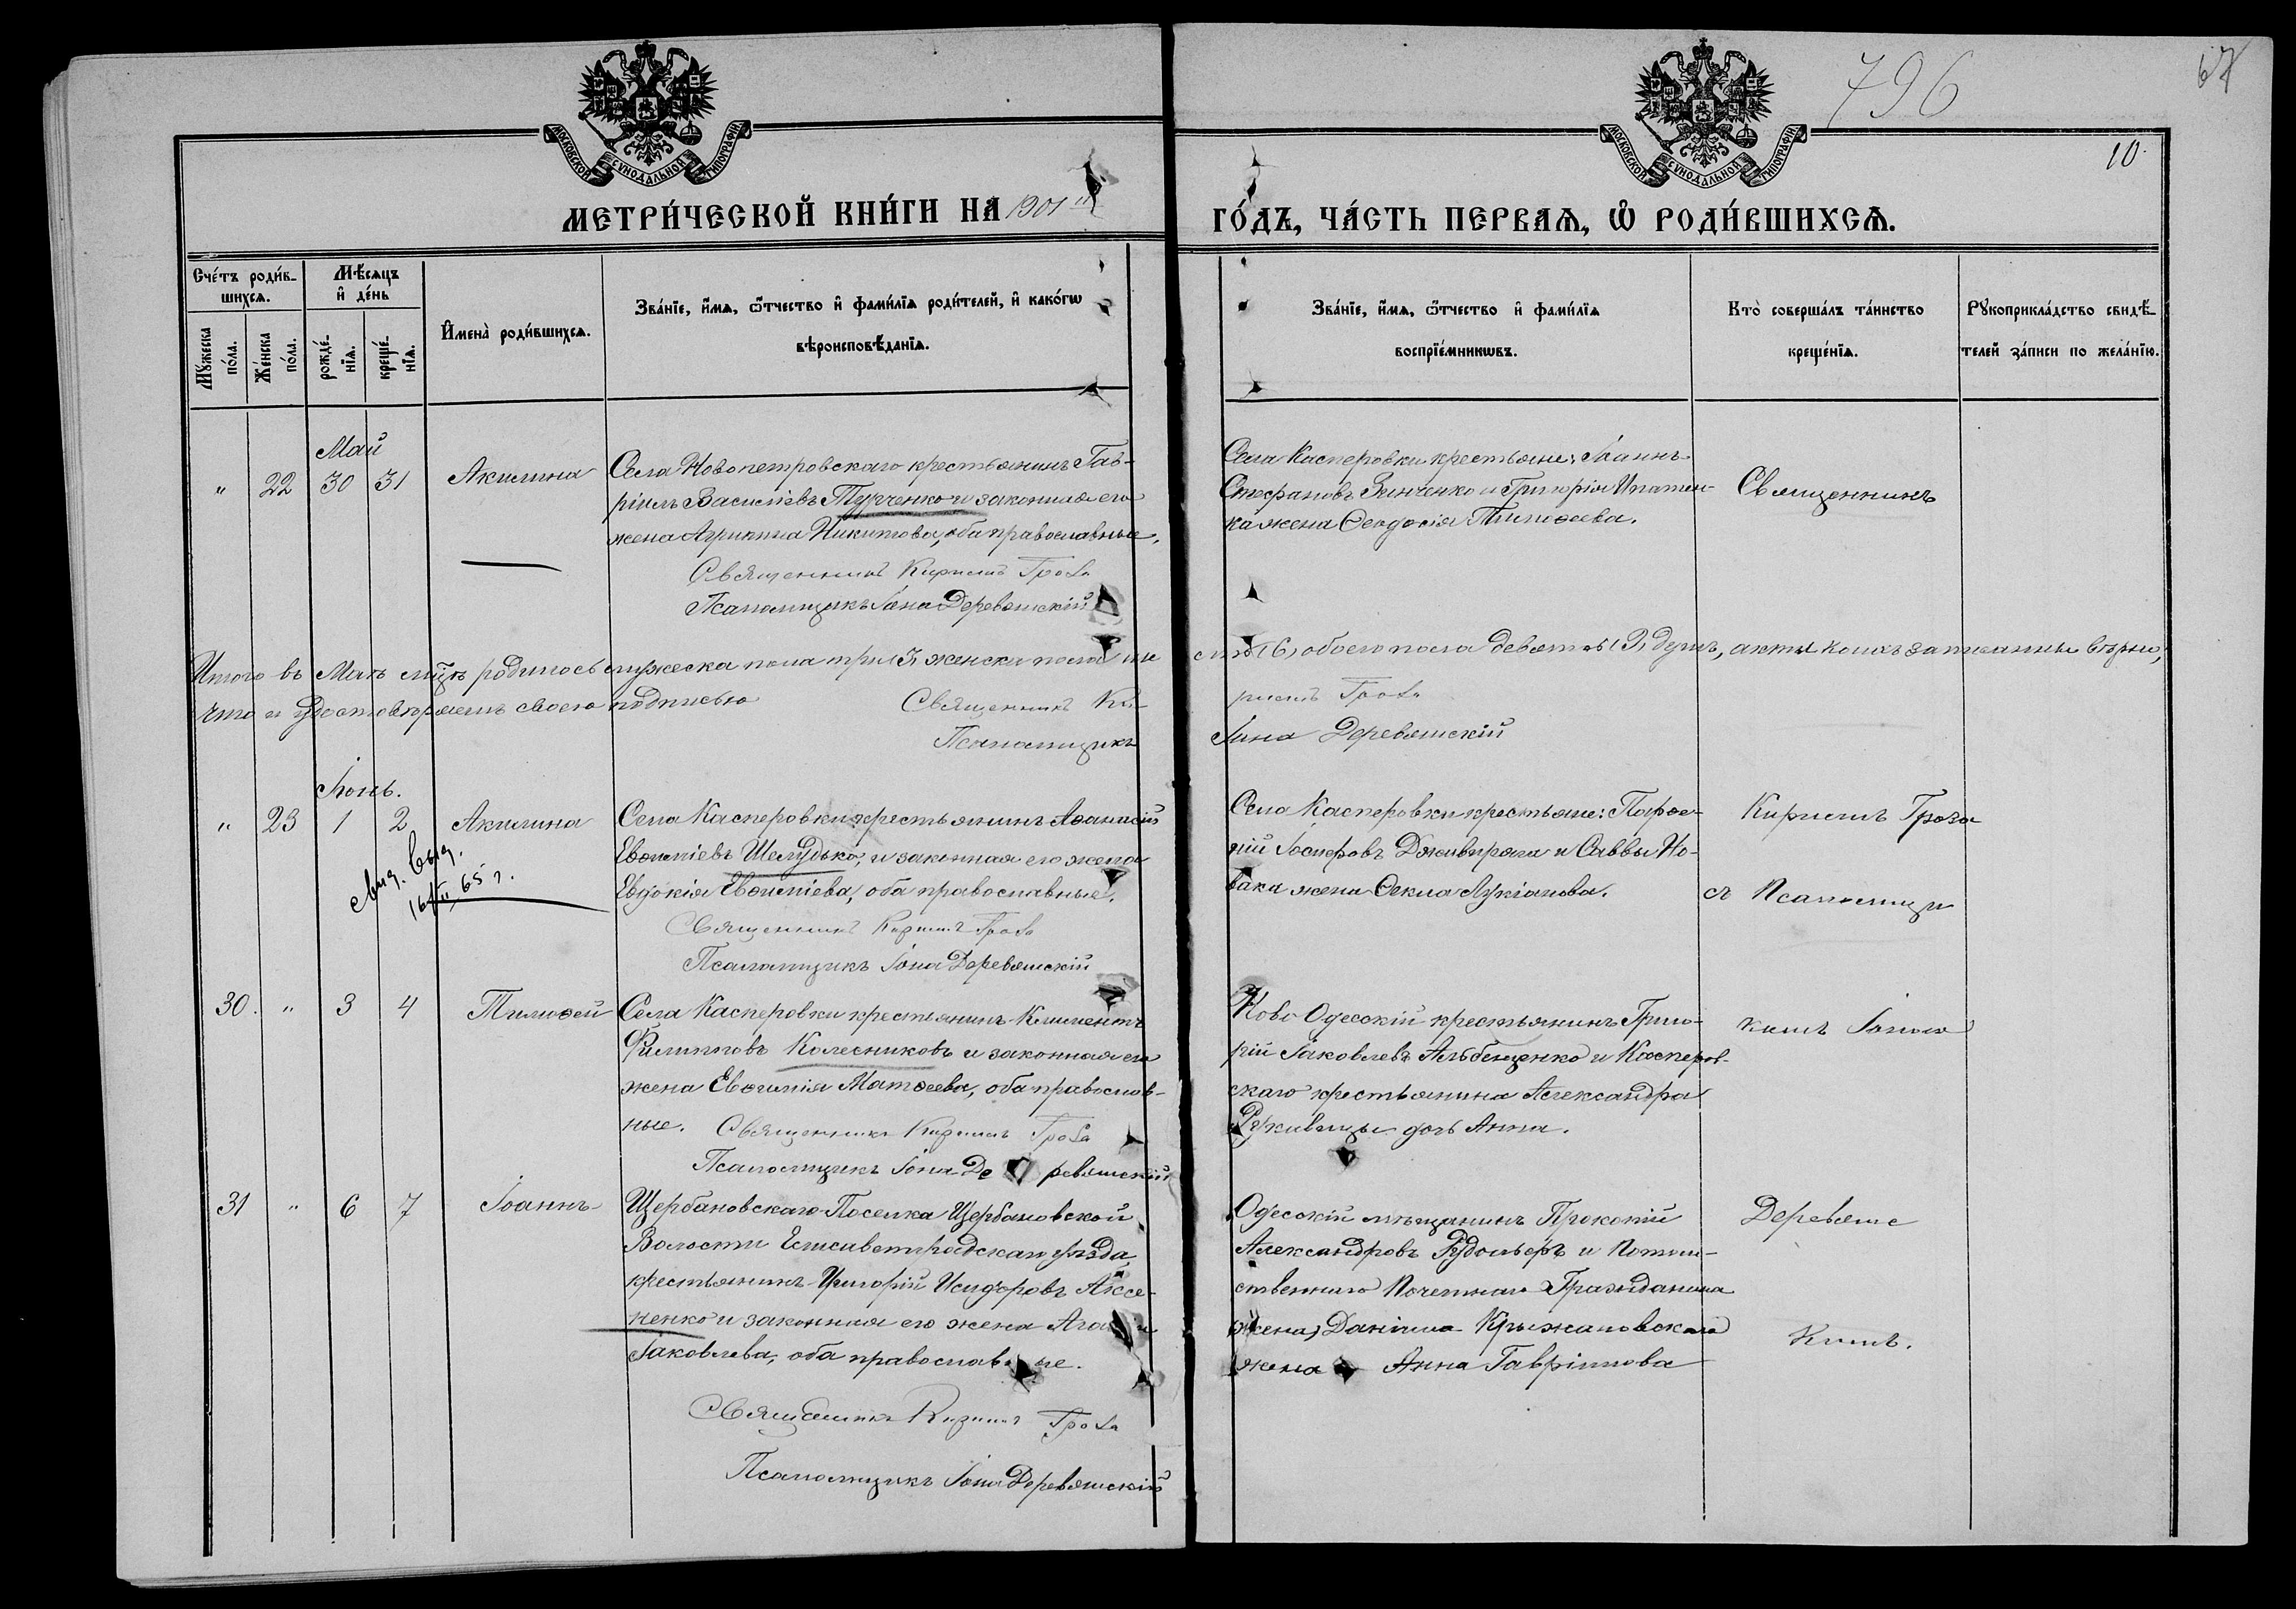 796
67
10.
МОСКОВСКОЙ СѴНОДАЛЬНОЙ ТИПОГРАФІИ
МОСКОВСКОЙ СѴНОДАЛЬНОЙ ТИПОГРАФІИ
МЕТРИ́ЧЕСКОЙ КНИ́ГИ НА 1901й
ГО́ДЪ, ЧА́СТЬ ПЕРВАѦ, Ѡ РОДИ́ВШИХСѦ.
Сче́тъ роди́в-
шихсѧ.
Мꙋ́жеска по́ла.
Же́нска по́ла.
Мѣ́сѧцъ
и҆ де́нь
рожде́-нїѧ.
креще́-нїѧ.
И҆мена̀ роди́вшихсѧ.
Зва́нїе, и҆́мѧ, ѻ҆́тчество и҆ фами́лїѧ роди́телей, и҆ како́гѡ
вѣроисповѣ́данїѧ.
Зва́нїе, и҆́мѧ, ѻ҆́тчество и҆ фами́лїѧ
воспрїе́мникѡвъ.
Кто̀ соверша́лъ та́инство
креще́нїѧ.
Рꙋкоприкла́дство свидѣ́-
телей за́писи по жела́нїю.
Май
" 22 30 31 Акилина
Села Новопетровскаго крестьянинъ Гав-
ріилъ Василіевъ Турченко и законная его
жена Агрипина Никитова, оба православные.
Священникъ Кирилъ Гроза
Псаломщикъ Іона Деревянскій
Села Касперовки крестьяне: Іоаннъ
Стефановъ Зинченко и Григорія Ипатен-
ка жена Ѳеодосія Тимоѳеева.
Священникъ
Итого въ Маѣ мцѣ родилось мужеска пола три (3) женска пола ше
сть (6) обоего пола девять (9) душъ, акты коихъ записанны вѣрно,
что и удостовѣряемъ своею подписью Священникъ Ки
рилъ Гроза
Псаломщикъ
Іона Деревянскій
Іюнь.
" 23 1 2 Акилина
Села Касперовки крестьянинъ Аѳанасій
Евѳиміевъ Шелудько, и законная его жена
Евдокія Евѳиміева, оба православные.
Священникъ Кирилъ Гроза
Псаломщикъ Іона Деревянскій
16/II 65 г.
Села Касперовки крестьяне: Парѳе-
ній Іосифовъ Дживпряга и Саввы Но-
вака жена Ѳекла Лукіанова.
Кирилъ Гроза
съ Псаломщи
30. " 3 4 Тимоѳей
Села Касперовки крестьянинъ Климентъ
Филипповъ Колесниковъ и законная его
жена Евѳимія Матѳеева, оба православ-
ные. Священникъ Кирилъ Гроза
Псаломщикъ Іона Деревянскій
Ново Одесскій крестьянинъ Григо-
рій Іаковлевъ и Касперов-
скаго крестьянина Александра
дочь Анна.
комъ Іоною
31 " 6 7 Іоаннъ
Щербановскаго Поселка Щербановской
Волости Елисаветградскаго уѣзда,
крестьянинъ Григорій Исидоровъ Аксе-
ненко и законная его жена
Іаковлева, оба православные.
Священникъ Кирилъ Гроза
Псаломщикъ Іона Деревянскій
Одесскій мѣщанинъ Прокопій
Александровъ и Потом-
ственнаго Почетнаго Гражданина
жена) Даніила Крыжановскаго
жена Анна Гавріилова
Деревянс
кимъ.